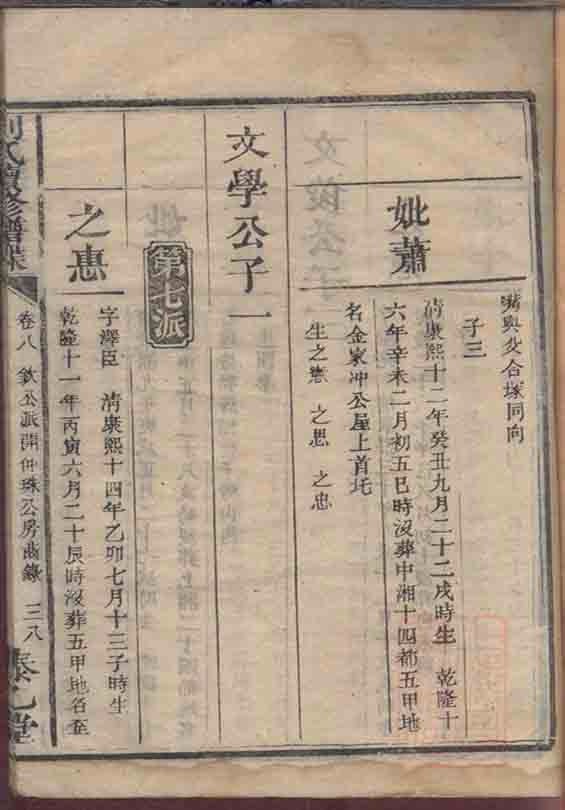 與父合塚同向
子三
妣蕭
清康熙十二年癸丑九月二十二戌時生 乾隆十
六年辛未二月初五巳時沒葬中湘十四都五甲地
名金家冲公屋上首圫
生之惠 之思 之忠
文學公子一
第七派
之惠
字澤臣 清康熙十四年乙卯七月十三子時生
乾隆十一年丙寅六月二十辰時沒葬五甲地名至
氏續修譜牒
卷八 欽公派開仲珠公房齒錄 三八
泰乙堂